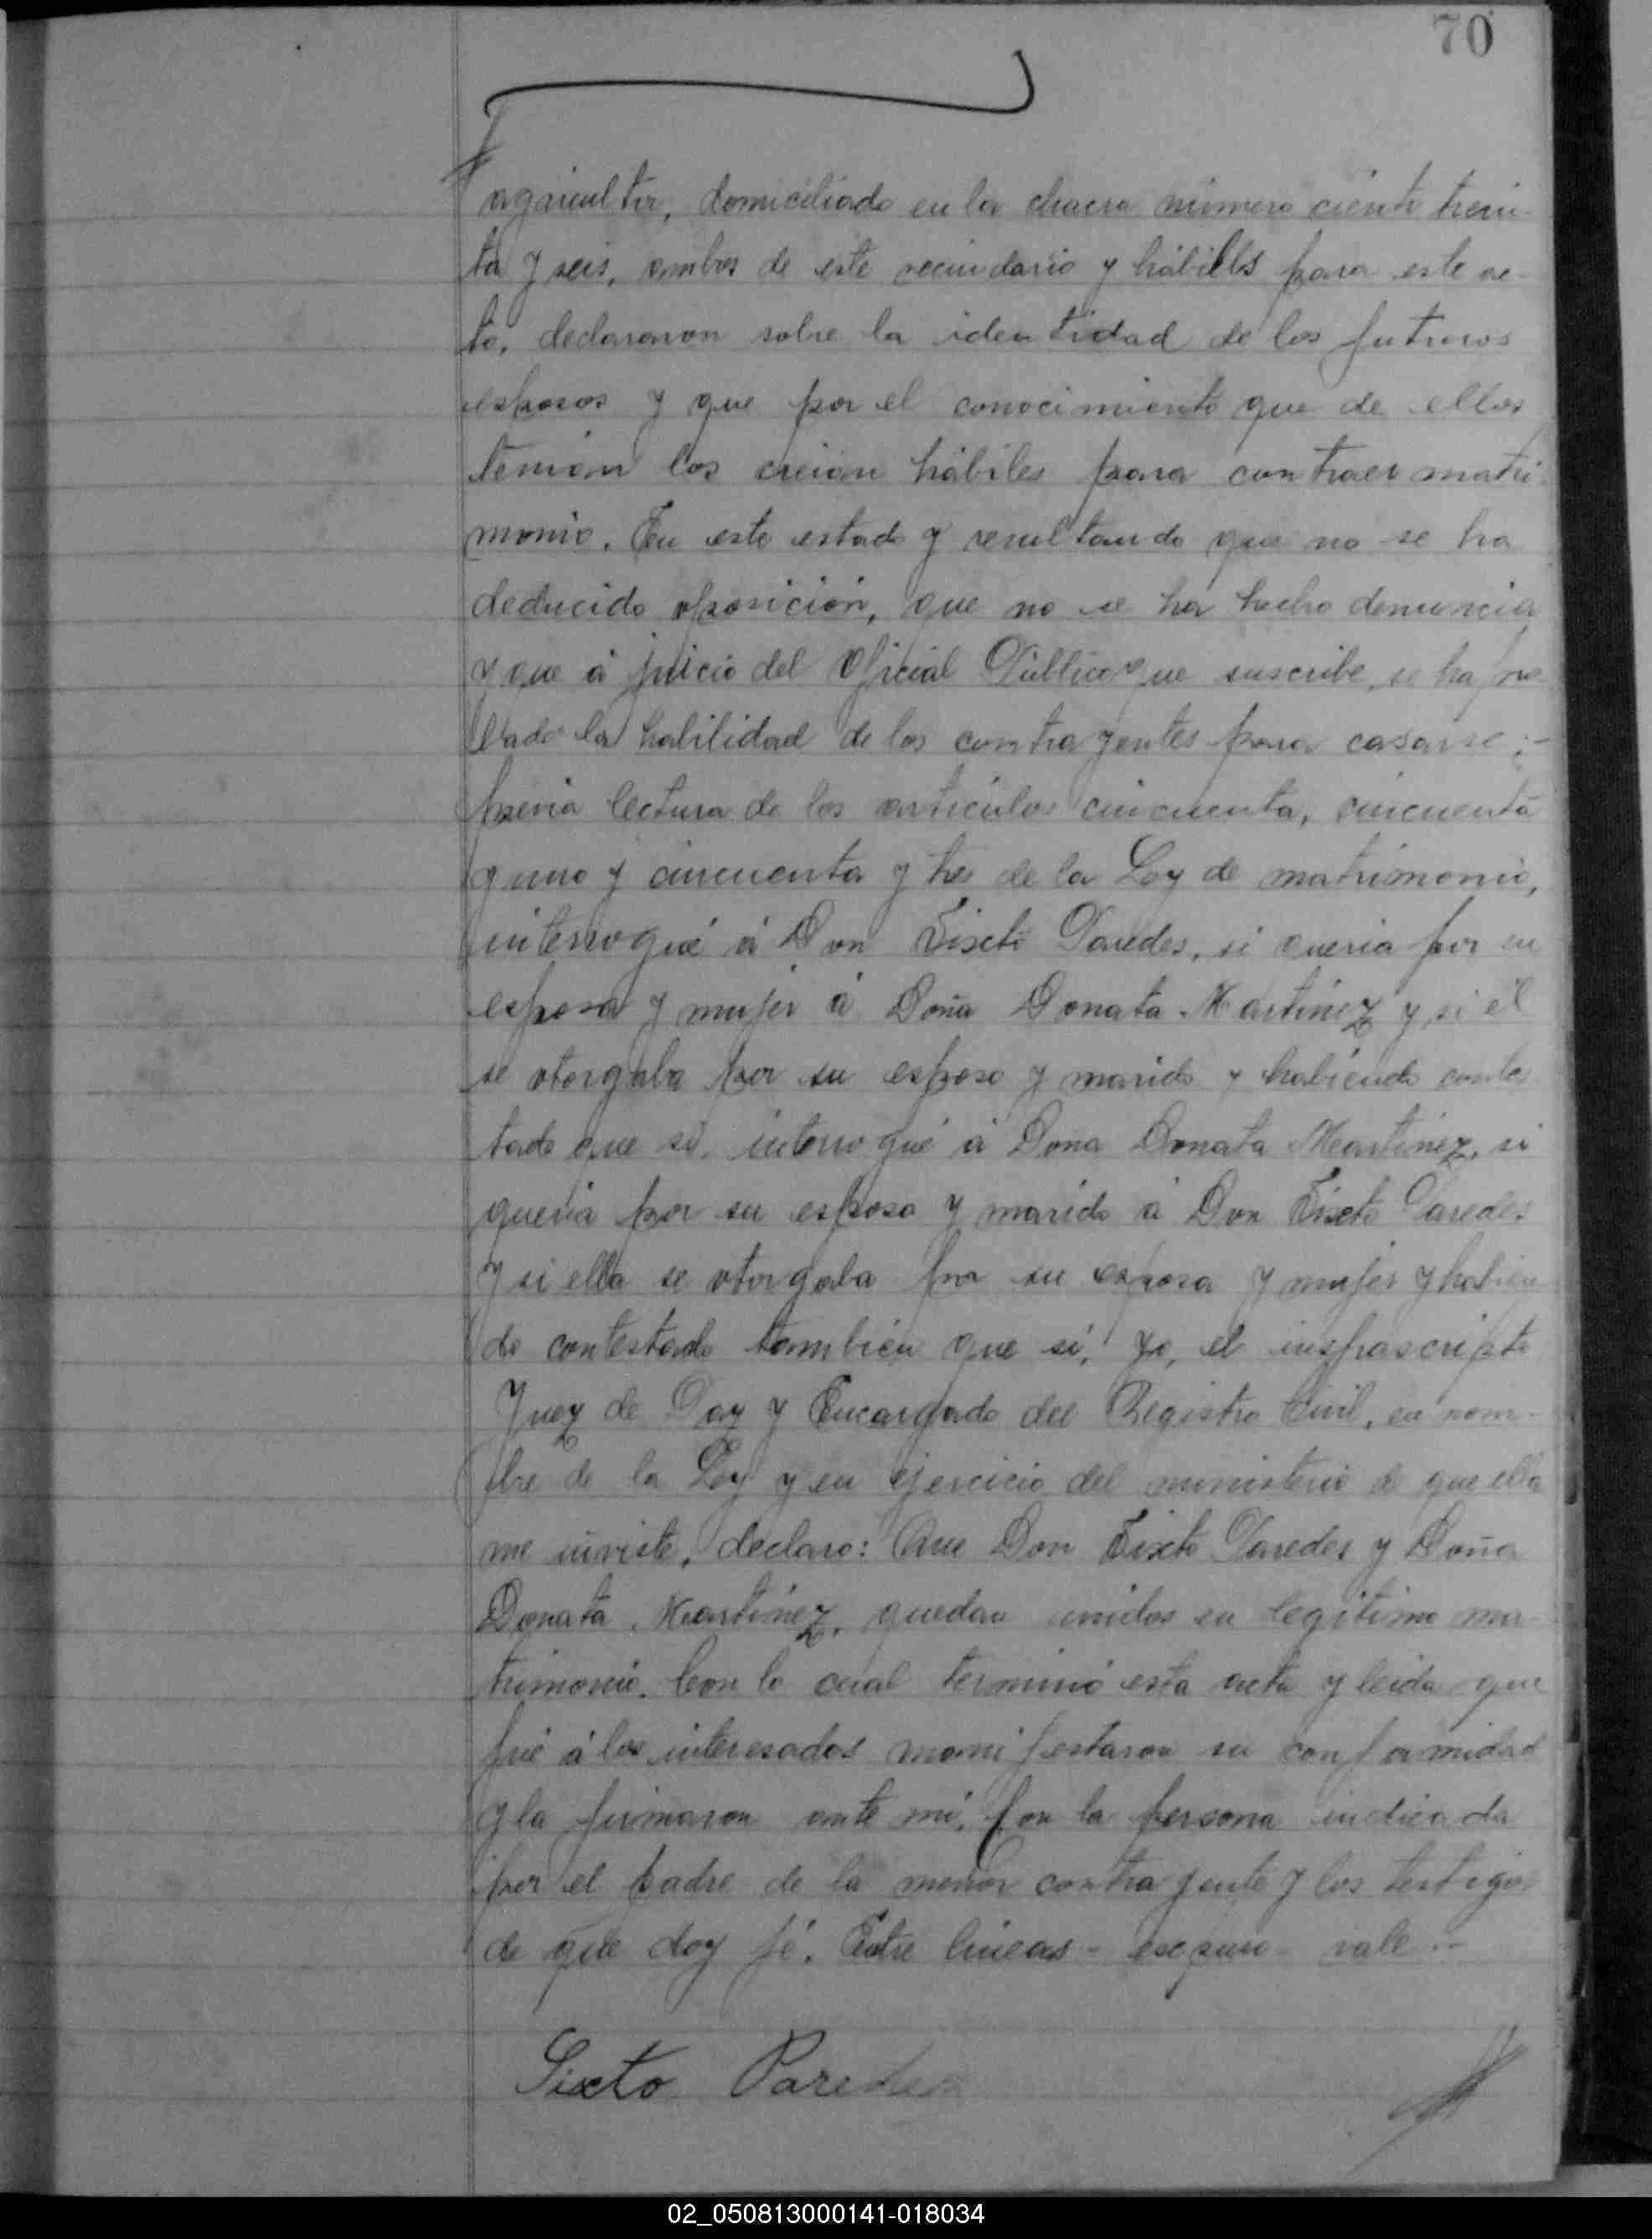 70
agricultor, domiciliado en la chacra número ciento trein-
ta y seis, ambos de este vecindario y hábiles para este ac-
to, declararon sobre la identidad de los futuros
esposos y que por el conocimiento que de ellos
tenian los creian hábiles para contraer matri-
monio. En este estado y resultando que no se ha
deducido oposición, que no se ha hecho denuncia
y que á juicio del Oficial Público que suscribe, se ha pro-
bado la habilidad de los contrayentes para casarse;-
previa lectura de los artículos cincuenta, cincuenta
y uno y cincuenta y tres de la Ley de matrimonio,
interrogué á Don Sixto Paredes, si queria por su
esposa y mujer á Doña Donata Martínez y si él
se otorgaba por su esposo y marido y habiendo contes
tado que sí, interrogué á Dona Donata Martínez, si
queria por su esposo y marido á Don Sixto Paredes
y si ella se otorgaba por su esposa y mujer y habien
do contestado también que sí, yo, el infrascripto
Juez de Paz y Encargado del Registro Civil, en nom-
bre de la Ley y en ejercicio del ministerio de que ella
me inviste, declaro: Que Don Sixto Paredes y Doña
Donata Martínez, quedan unidos en legítimo ma-
trimonio. Con lo cual terminó esta acta y leida que
fué á los interesados manifestaron su conformidad
y la firmaron ante mí, con la persona indicada
por el padre de la menor contrayente y los testigos
de que doy fé. Entre lineas - expuso - vale.-
Sixto Paredes
02_050813000141-018034